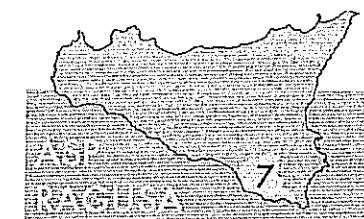 7
ASP
RAGUSA